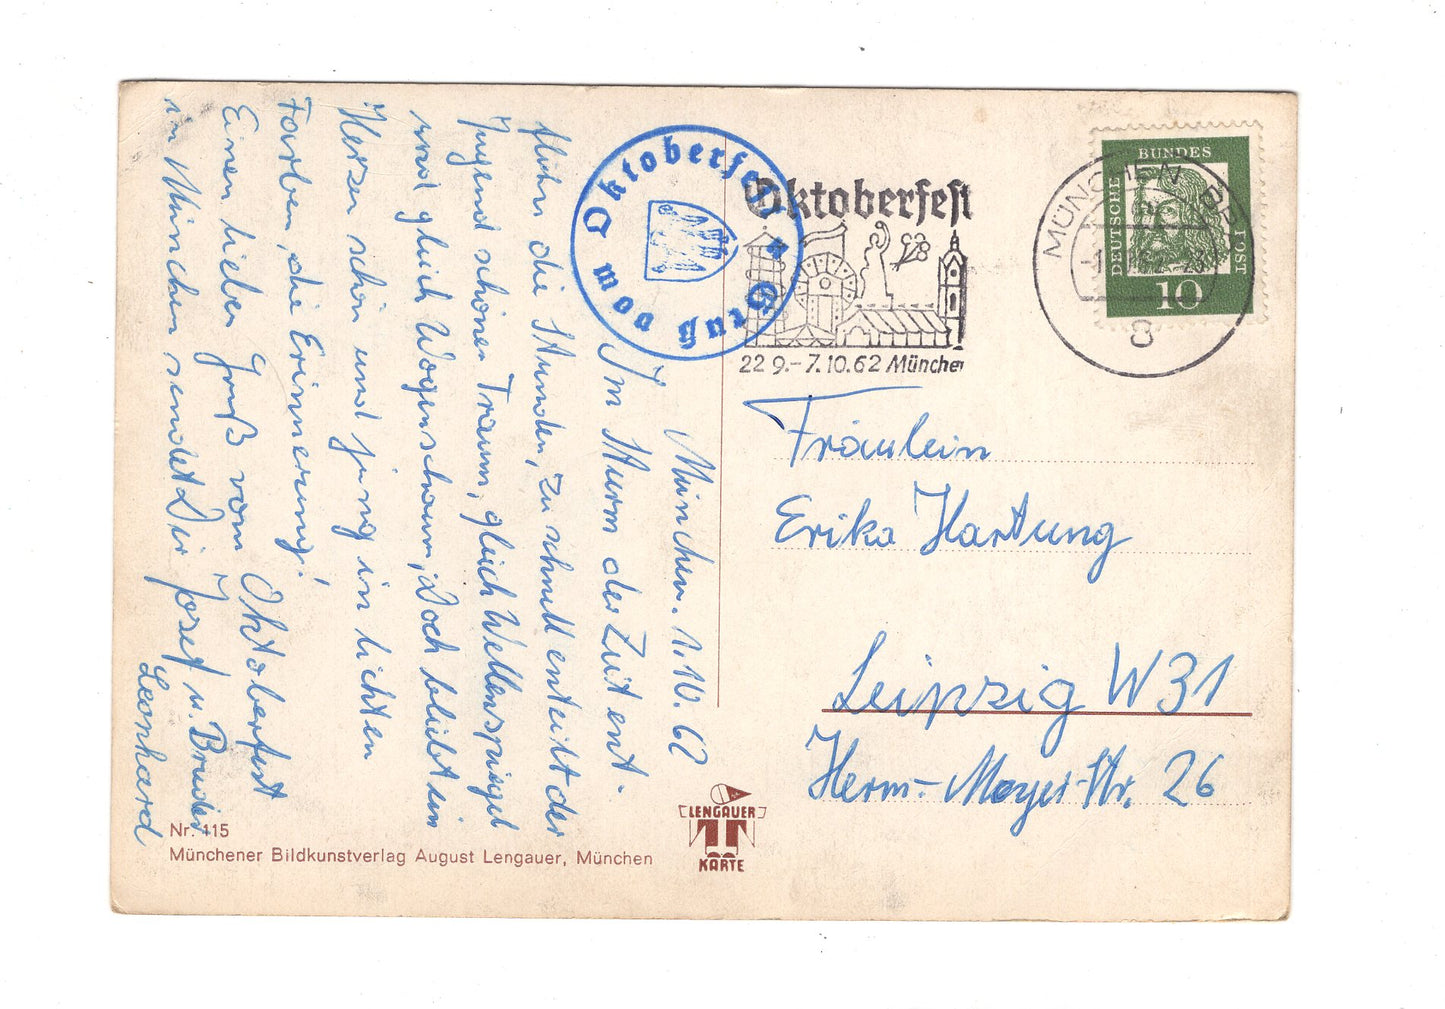 München. 1.10.62
Im Sturm der Zeit ent-
fliehn die Stunden, zu schnell enteilt der
Jugend schönen Traum, gleich Wellenspiegel
und gleich Wogenschaum, Doch bleibt im
Herzen schön und jung in lichten
Farben, die Erinnerung!
Einen lieben Gruß vom Oktoberfest
in München sendet Dir Josef u. Bruder
Leonhard
Gruß vom Oktoberfest
Oktoberfest
22 9.-7.10.62 München
MÜNCHEN
DEUTSCHE
BUNDES
POST
10
Fräulein
Erika Hartung
Leipzig W31
Herm.-Meyer-Str. 26
Nr. 115
Münchener Bildkunstverlag August Lengauer, München
LENGAUER
KARTE